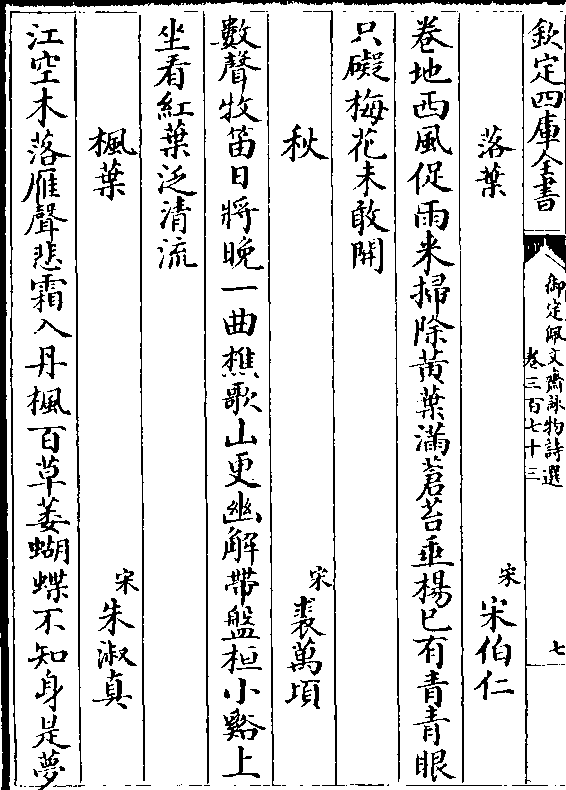 欽定四庫全書
御定佩文齋詠物詩選
卷三百七十三
七
落葉
宋
宋伯仁
卷地西風促雨来掃除黄葉滿蒼苔垂楊已有青青眼
只礙梅花未敢開
秋
宋
裘萬頃
數聲牧笛日將晚一曲樵歌山更幽解帶盤桓小谿上
坐看紅葉泛清流
楓葉
宋
朱淑真
江空木落雁聲悲霜入丹楓百草萎蝴蝶不知身是夢